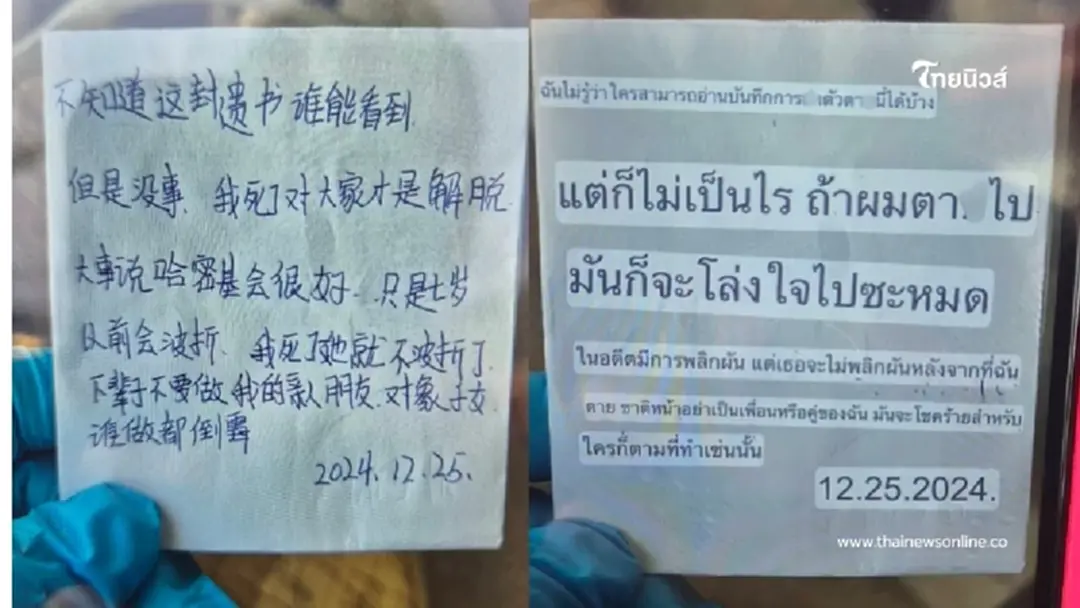 不知道这封遗书谁能看到.
但是没事. 我死了对大家才是解脱.
大事说哈密基会很好. 只是七岁
以前会波折. 我死了她就不波折了.
下辈子不要做我的亲人朋友. 对象子女
谁做都倒霉
2024.12.25.
ไทยนิวส์
ฉันไม่รู้ว่าใครสามารถอ่านบันทึกการ ตัวตา นี้ได้บ้าง
แต่ก็ไม่เป็นไร ถ้าผมตา. ไป
มันก็จะโล่งใจไปซะหมด
ในอดีตมีการพลิกผัน แต่เธอจะไม่พลิกผันหลังจากที่ฉัน
ตาย ชาติหน้าอย่าเป็นเพื่อนหรือคู่ของฉัน มันจะโชคร้ายสำหรับ
ใครก็ตามที่ทำเช่นนั้น
12.25.2024.
www.thainewsonline.co